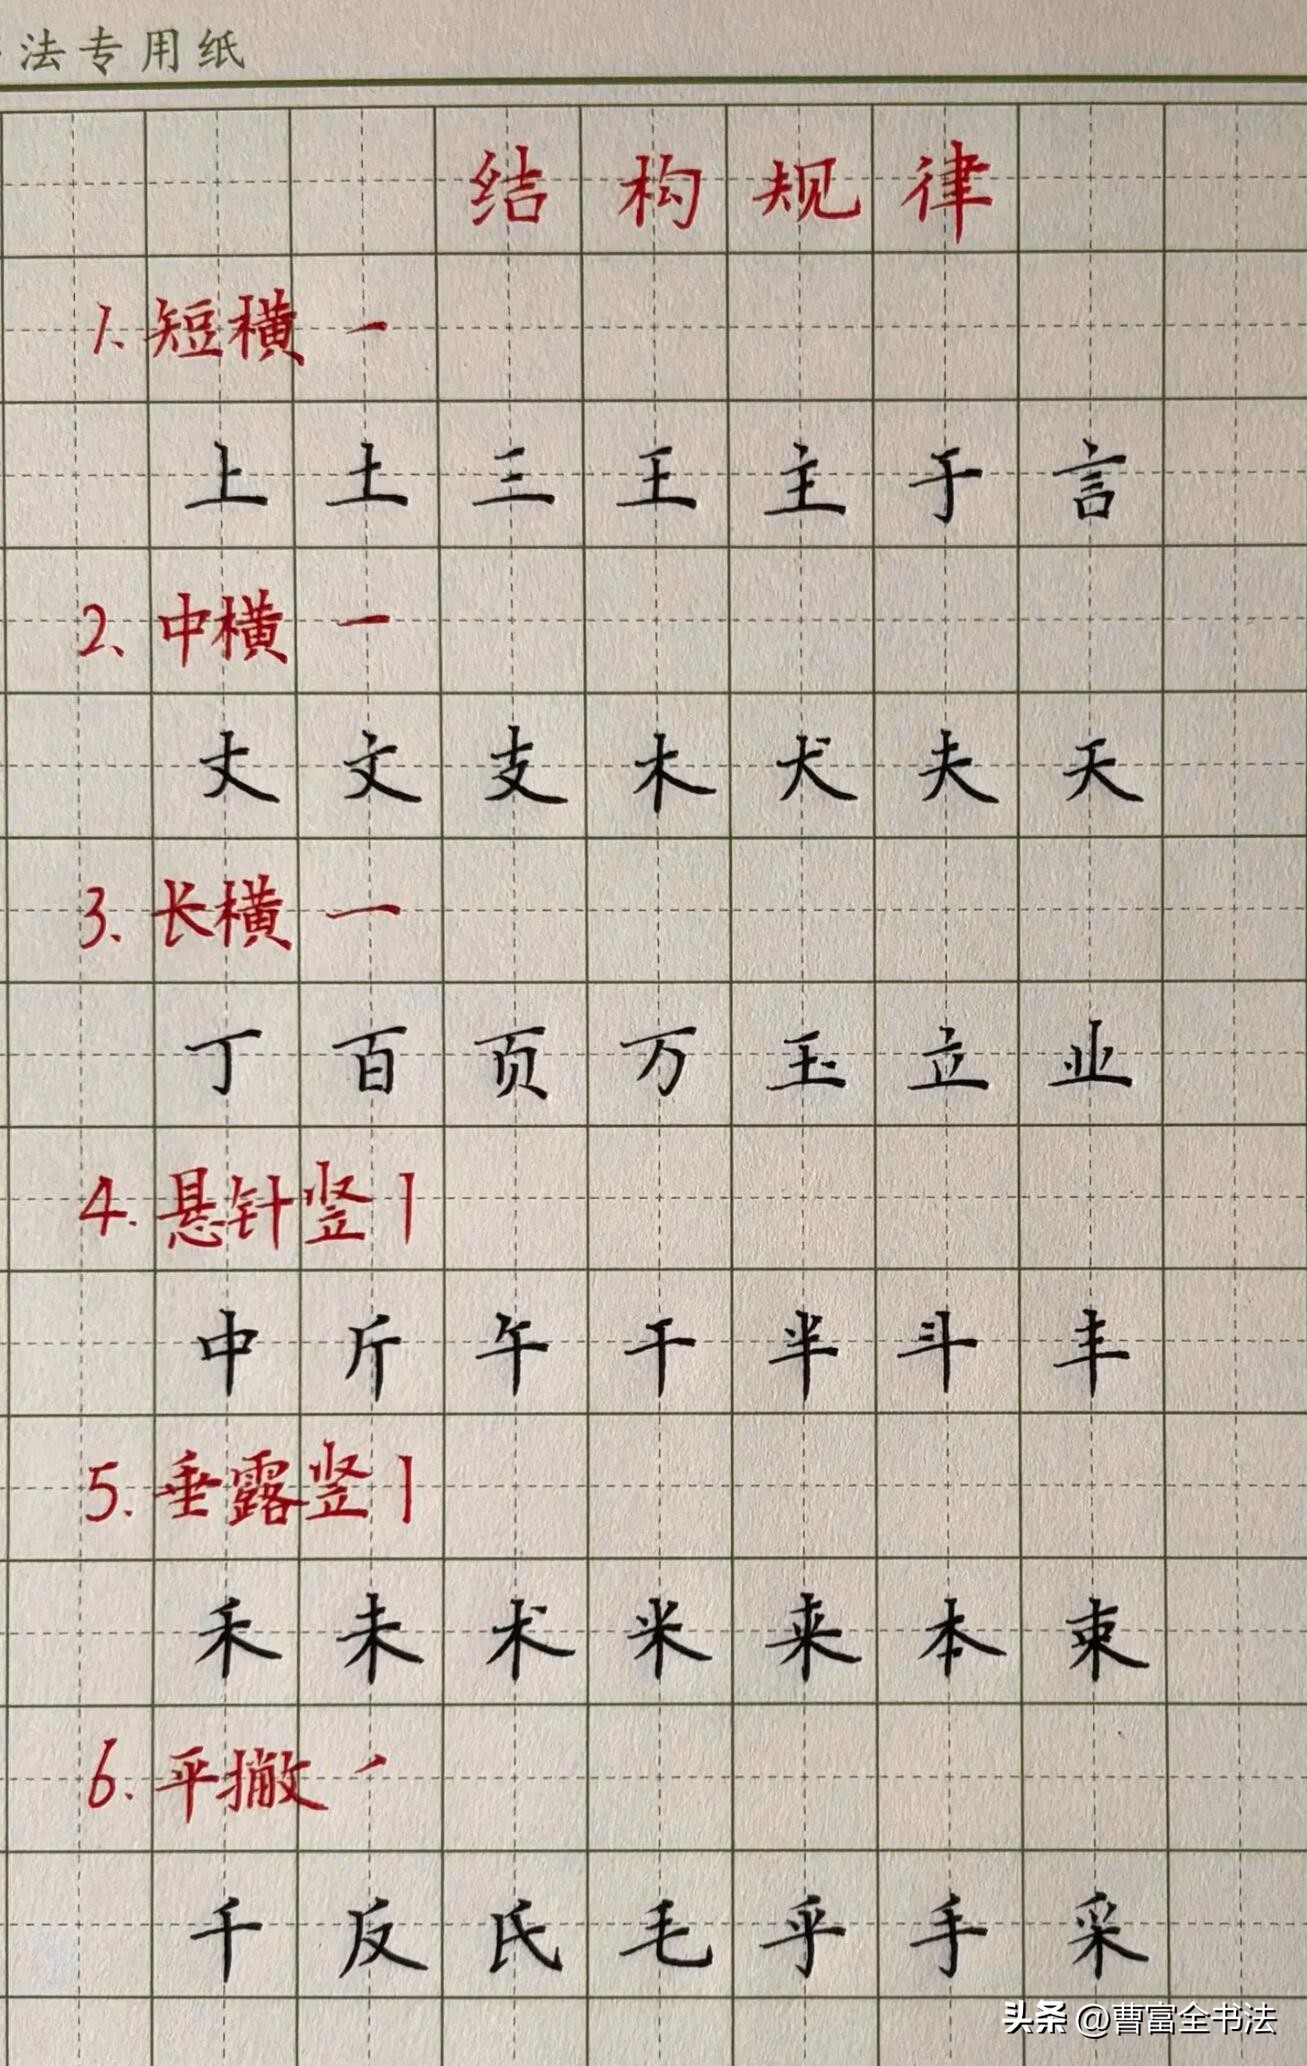 法专用纸
结构规律
1.短横 一
上土三王主于言
2、中横 一
丈文支木犬夫天
3、长横 一
丁百页万玉立业
4.悬针竖丨
中斤午干半斗丰
5.垂露竖丨
禾未术米来本束
6.平撇 丿
千反氏毛乎手采
头条 @曹富全书法